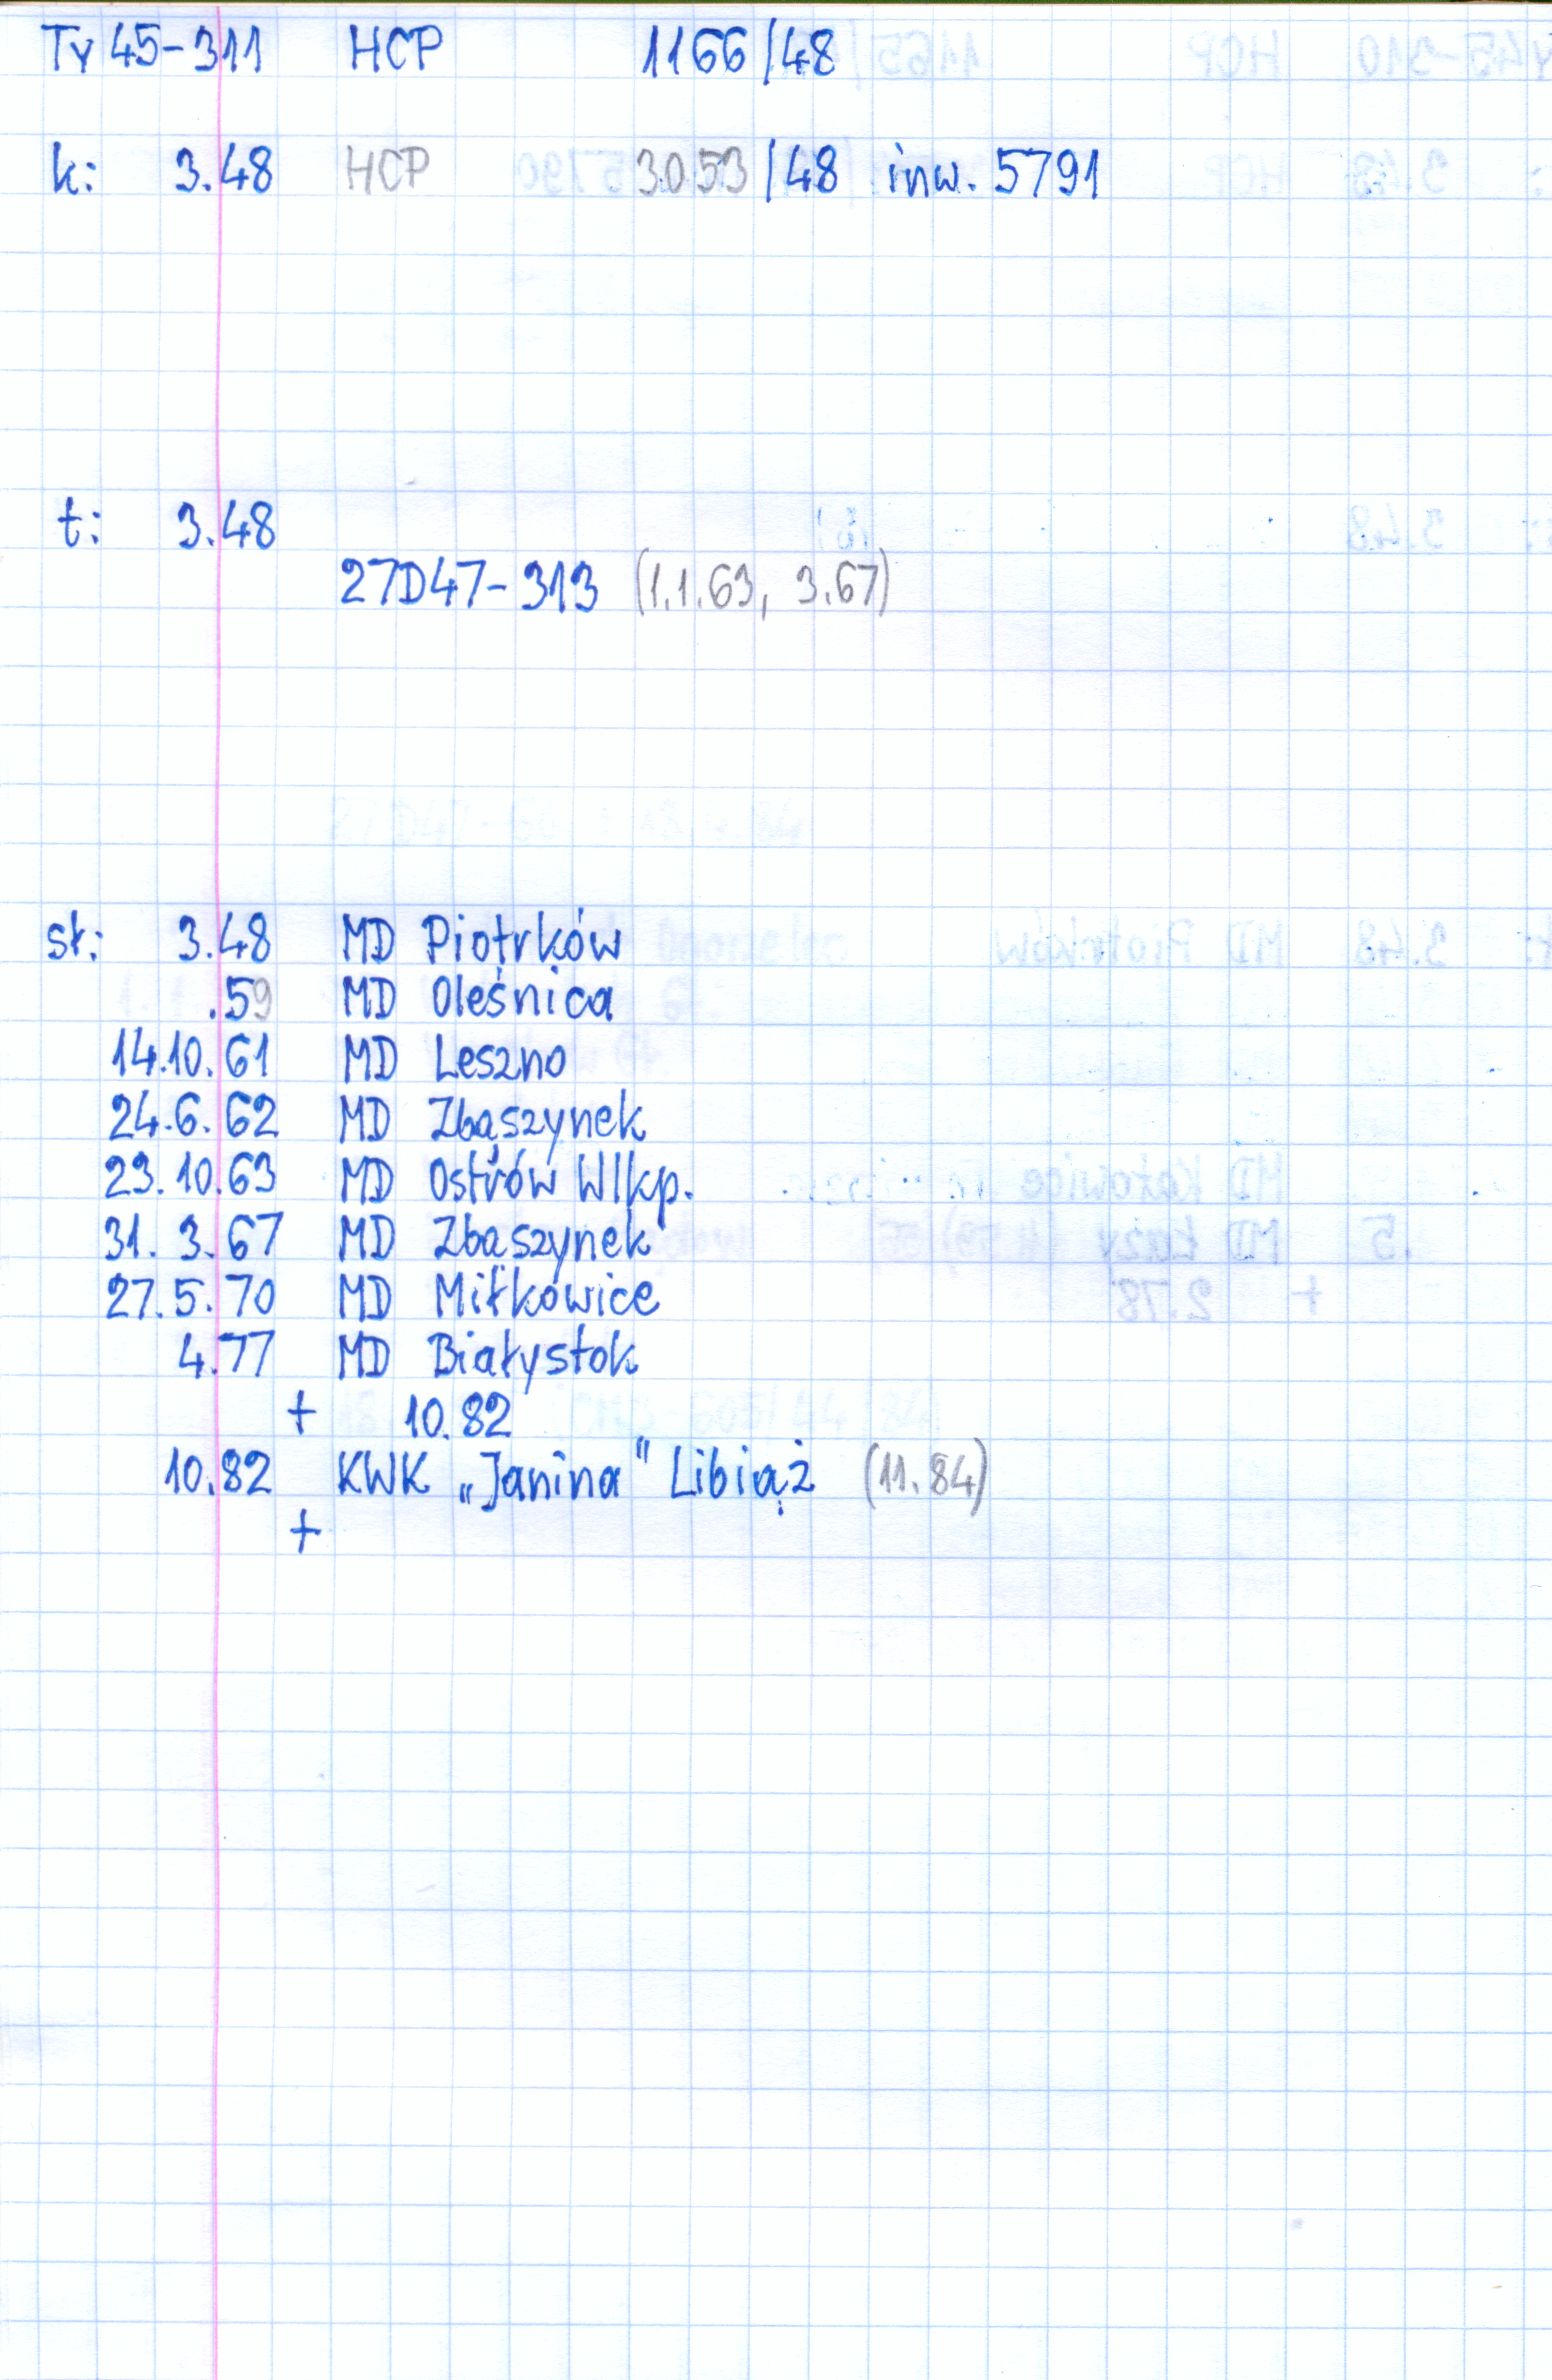 Ty 45-311 HCP 1166/48
k: 3.48 HCP 3053/48 inw. 5791
t: 3.48
27D47-313 (1.1.63, 3.67)
st: 3.48 MD Piotrków
.59 MD Oleśnica
14.10.61 MD Leszno
24.6.62 MD Zbąszynek
23.10.63 MD Ostrów Wlkp.
31.3.67 MD Zbąszynek
27.5.70 MD Miłkowice
4.77 MD Białystok
+ 10.82
10.82 KWK „Janina" Libiąż (11.84)
+